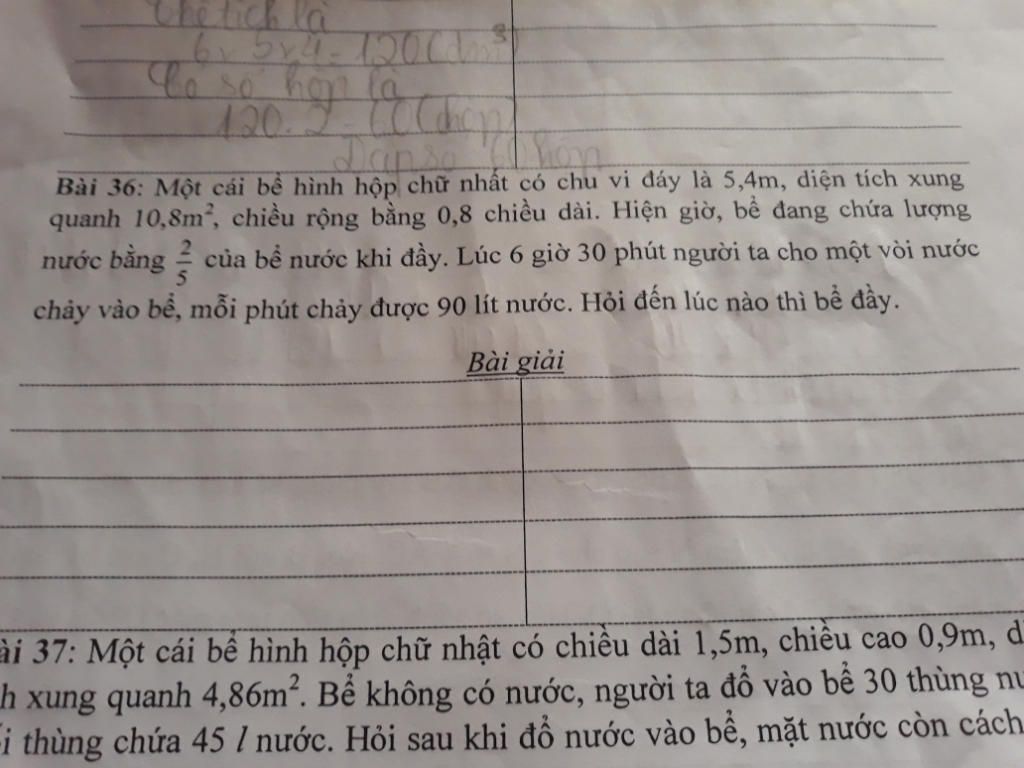 Thể tích là
6 x 5 x 4 = 120 (dm³)
Có số hộp là
120 : 2 = 60 (hộp)
Đáp số 60 hộp
Bài 36: Một cái bể hình hộp chữ nhất có chu vi đáy là 5,4m, diện tích xung
quanh 10,8m², chiều rộng bằng 0,8 chiều dài. Hiện giờ, bể đang chứa lượng
nước bằng 2/5 của bể nước khi đầy. Lúc 6 giờ 30 phút người ta cho một vòi nước
chảy vào bể, mỗi phút chảy được 90 lít nước. Hỏi đến lúc nào thì bể đầy.
Bài giải
ài 37: Một cái bể hình hộp chữ nhật có chiều dài 1,5m, chiều cao 0,9m, d
h xung quanh 4,86m². Bể không có nước, người ta đổ vào bể 30 thùng nư
i thùng chứa 45 l nước. Hỏi sau khi đổ nước vào bể, mặt nước còn cách